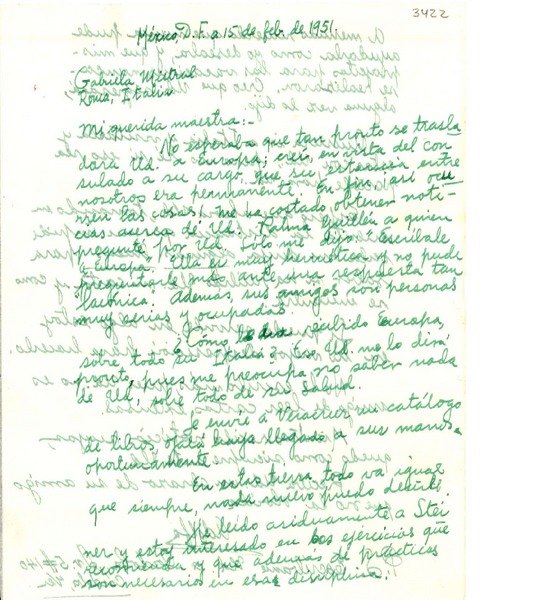 3422
México, D. F. a 15 de feb. de 1951.
Gabriela Mistral
Roma, Italia
Mi querida maestra:-
No esperaba que tan pronto se trasla
dara Ud. a Europa; creí, en vista del con
sulado a su cargo, que su estancia entre
nosotros era permanente. En fin, así ocu
rren las cosas! me ha costado obtener noti-
cias acerca de Ud. Palma Guillén a quien
pregunté por Ud. sólo me dijo "Escríbale
a Europa". Ella es muy hermética y no pude
preguntarle más ante una respuesta tan
lacónica. Además, sus amigos son personas
muy serias y ocupadas.
¿Cómo la ha recibido Europa,
sobre todo su Italia? Eso Ud. me lo dirá
pronto, pues me preocupa no saber nada
de Ud, sobre todo de su salud.
Le envié a Veracruz su catálogo
de libros, ojalá haya llegado a sus manos
oportunamente.
En estas tierra todo va igual
que siempre, nada nuevo puedo decirle.
He leído asiduamente a Stei
ner y estoy interesado en los ejercicios que
recomienda y que además de prácticos
son necesarios en esa disciplina.